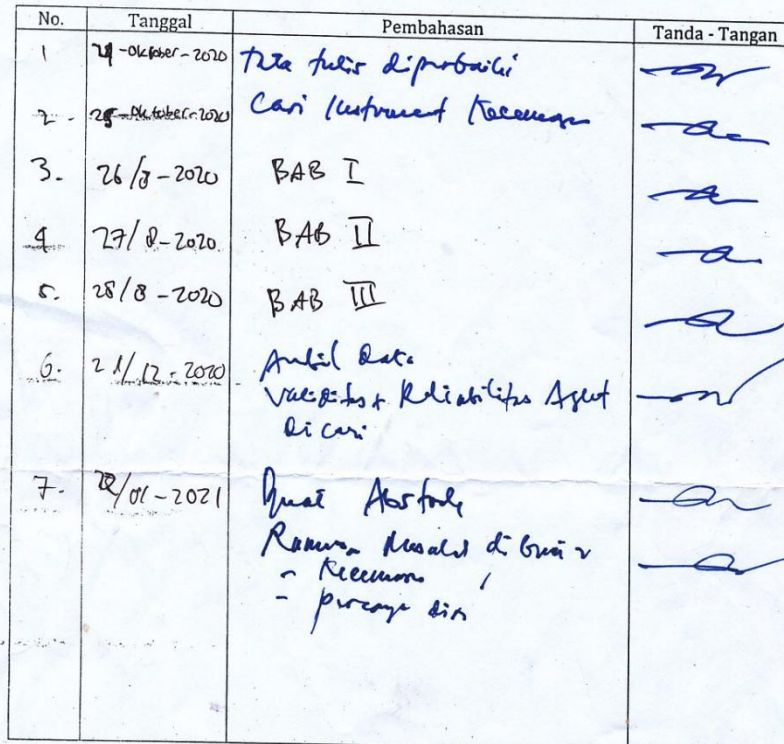 No. Tanggal Pembahasan Tanda - Tangan
1 -Oktober-2020 tata tulis diperbaiki
2. 25-Oktober-2020 Cari Instrument Kecemasan
3. 26/8-2020 BAB I
4 27/8-2020 BAB II
5. 28/8-2020 BAB III
6. 21/12-2020 Ambil Data
Validitas + Reliabilitas Aglut
Di cari
7. /01-2021 Buat Abstrak
Rumusan Masalah di buat 2
- Kecemasan
- percaya diri